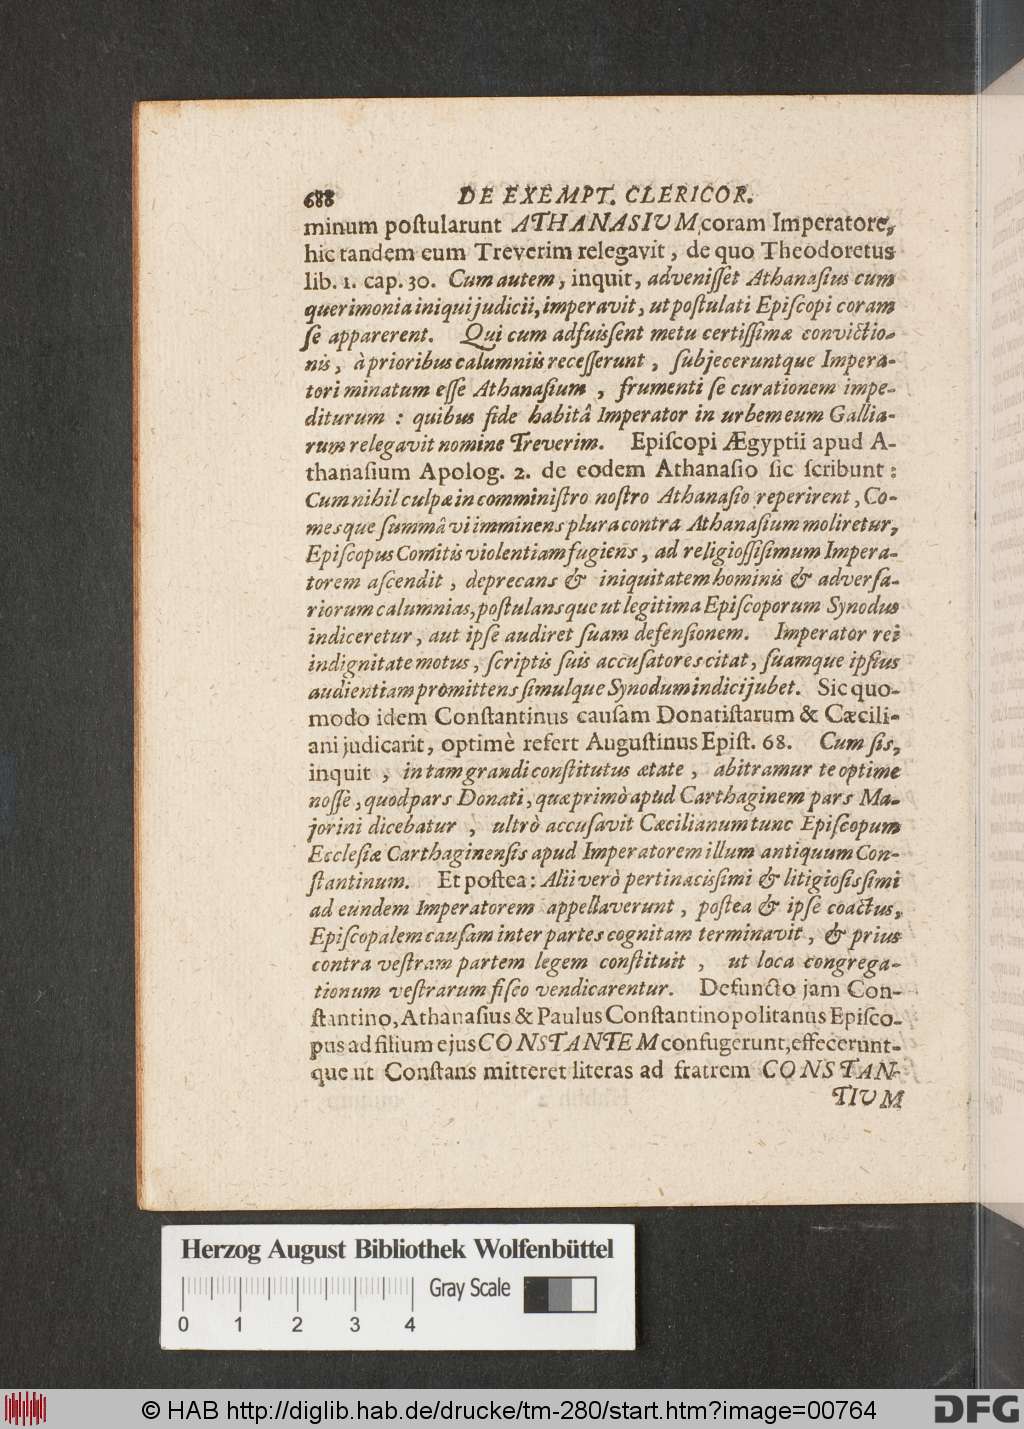 688 DE EXEMPT. CLERICOR.
minum poſtularunt ATHANASIUM coram Imperatore,
hic tandem eum Treverim relegavit, de quo Theodoretus
lib. 1. cap. 30. Cum autem, inquit, adveniſſet Athanaſius cum
querimonia iniqui judicii, imperavit, ut poſtulati Epiſcopi coram
ſe apparerent. Qui cum adfuiſſent metu certiſſimæ convictio-
nis, à prioribus calumniis receſſerunt, ſubjeceruntque Impera-
tori minatum eſſe Athanaſium, frumenti ſe curationem impe-
diturum : quibus fide habitâ Imperator in urbem eum Gallia-
rum relegavit nomine Treverim. Epiſcopi Ægyptii apud A-
thanaſium Apolog. 2. de eodem Athanaſio ſic ſcribunt:
Cum nihil culpæ in comminiſtro noſtro Athanaſio reperirent, Co-
mesque ſummâ vi imminens plura contra Athanaſium moliretur,
Epiſcopus Comitis violentiam fugiens, ad religioſſiſimum Impera-
torem aſcendit, deprecans & iniquitatem hominis & adverſa-
riorum calumnias, poſtulansque ut legitima Epiſcoporum Synodus
indiceretur, aut ipſe audiret ſuam defenſionem. Imperator rei
indignitate motus, ſcriptis ſuis accuſatores citat, ſuamque ipſius
audientiam promittens ſimulque Synodum indici jubet. Sic quo-
modo idem Conſtantinus cauſam Donatiſtarum & Cæcili-
ani judicarit, optimè refert Auguſtinus Epiſt. 68. Cum ſis,
inquit, in tam grandi conſtitutus ætate, abitramur te optime
noſſe, quod pars Donati, quæ primò apud Carthaginem pars Ma-
jorini dicebatur, ultrò accuſavit Cæcilianum tunc Epiſcopum
Eccleſiæ Carthaginenſis apud Imperatorem illum antiquum Con-
ſtantinum. Et poſtea: Alii verò pertinaciſſimi & litigioſiſſimi
ad eundem Imperatorem appellaverunt, poſtea & ipſe coactus,
Epiſcopalem cauſam inter partes cognitam terminavit, & prius
contra veſtram partem legem conſtituit, ut loca congrega-
tionum veſtrarum fiſco vendicarentur. Defuncto jam Con-
ſtantino, Athanaſius & Paulus Conſtantinopolitanus Epiſco-
pus ad filium ejus CONSTANTEM confugerunt, effecerunt-
que ut Conſtans mitteret literas ad fratrem CONSTAN-
TIUM
Herzog August Bibliothek Wolfenbüttel
Gray Scale
0 1 2 3 4
© HAB http://diglib.hab.de/drucke/tm-280/start.htm?image=00764
DFG